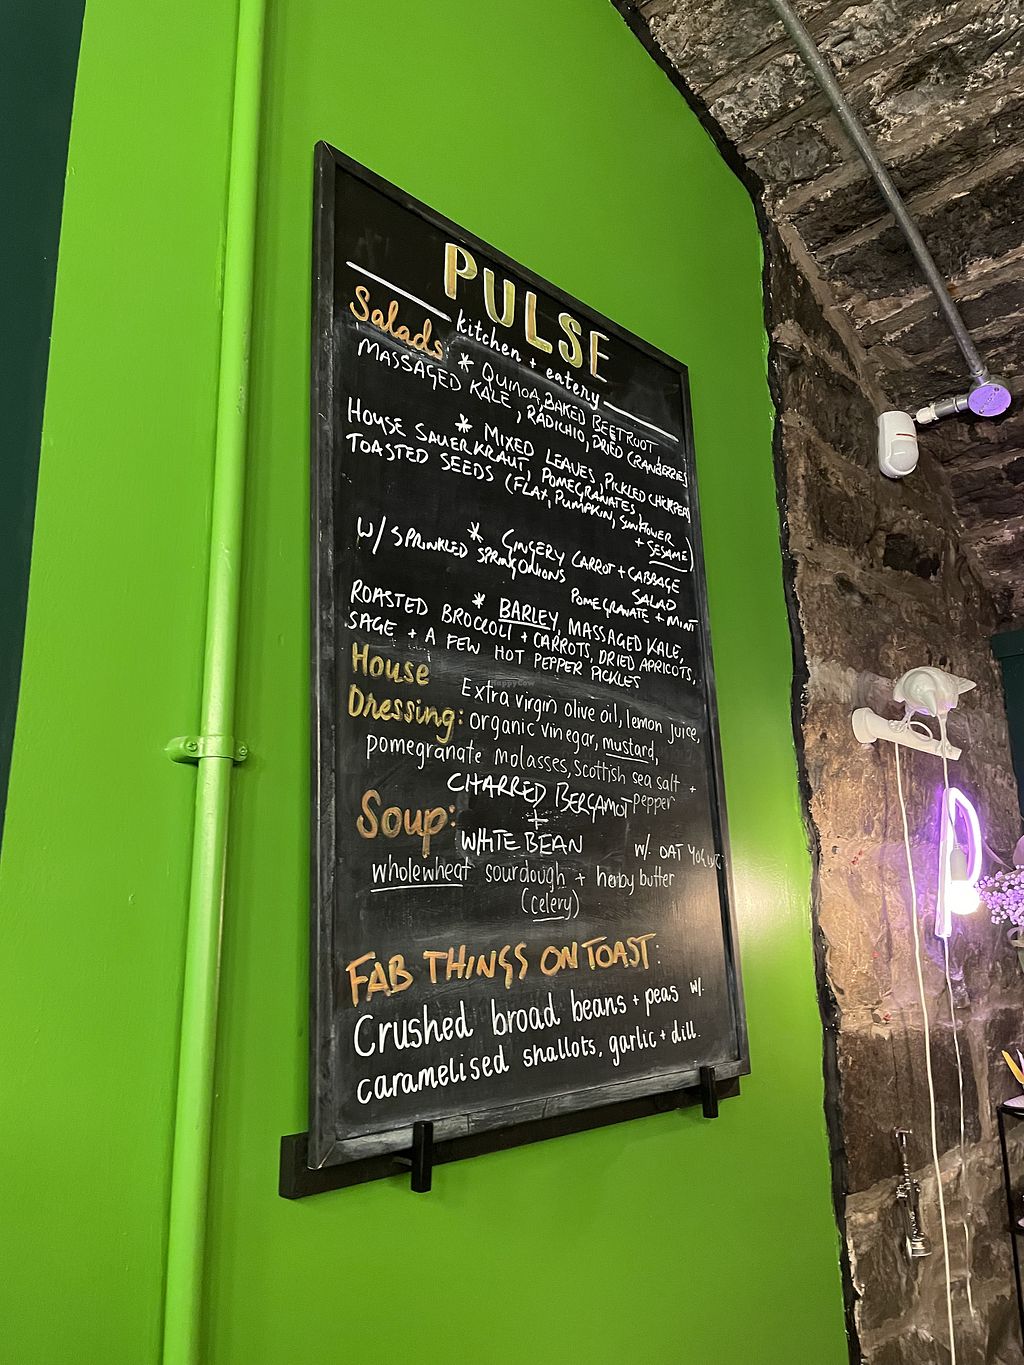 PULSE
kitchen + eatery
Salads: * QUINOA, BAKED BEETROOT,
MASSAGED KALE, RADICHIO, DRIED CRANBERRIES
* MIXED LEAVES, PICKLED CHICKPEAS
HOUSE SAUERKRAUT, POMEGRANATES,
TOASTED SEEDS (FLAX, PUMPKIN, SUNFLOWER
+ SESAME)
* GINGERY CARROT + CABBAGE
SALAD
W/ SPRINKLED SPRING ONIONS
POMEGRANATE + MINT
* BARLEY, MASSAGED KALE,
ROASTED BROCCOLI + CARROTS, DRIED APRICOTS,
SAGE + A FEW HOT PEPPER PICKLES
House
Dressing: Extra virgin olive oil, lemon juice,
organic vinegar, mustard,
pomegranate molasses, Scottish sea salt +
pepper
Soup: CHARRED BERGAMOT
+
WHITE BEAN w/. OAT YOGURT
wholewheat sourdough + herby butter
(celery)
FAB THINGS ON TOAST:
Crushed broad beans + peas w/.
caramelised shallots, garlic + dill.
HappyCow